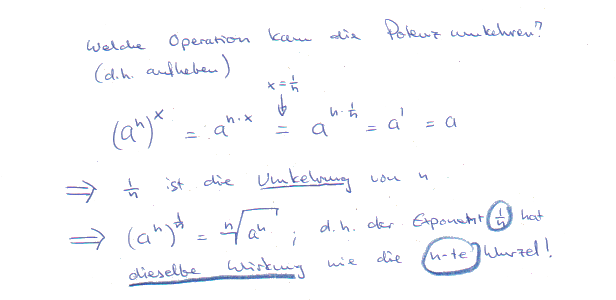 Welche Operation kann die Potenz umkehren?
(d.h. aufheben)
x = 1/n
↓
(aⁿ)ˣ = aⁿ·ˣ = aⁿ·¹/ⁿ = a¹ = a
⇒ 1/n ist die Umkehrung von n
⇒ (aⁿ)¹/ⁿ = ⁿ√aⁿ ; d.h. der Exponent 1/n hat
dieselbe Wirkung wie die n-te Wurzel!